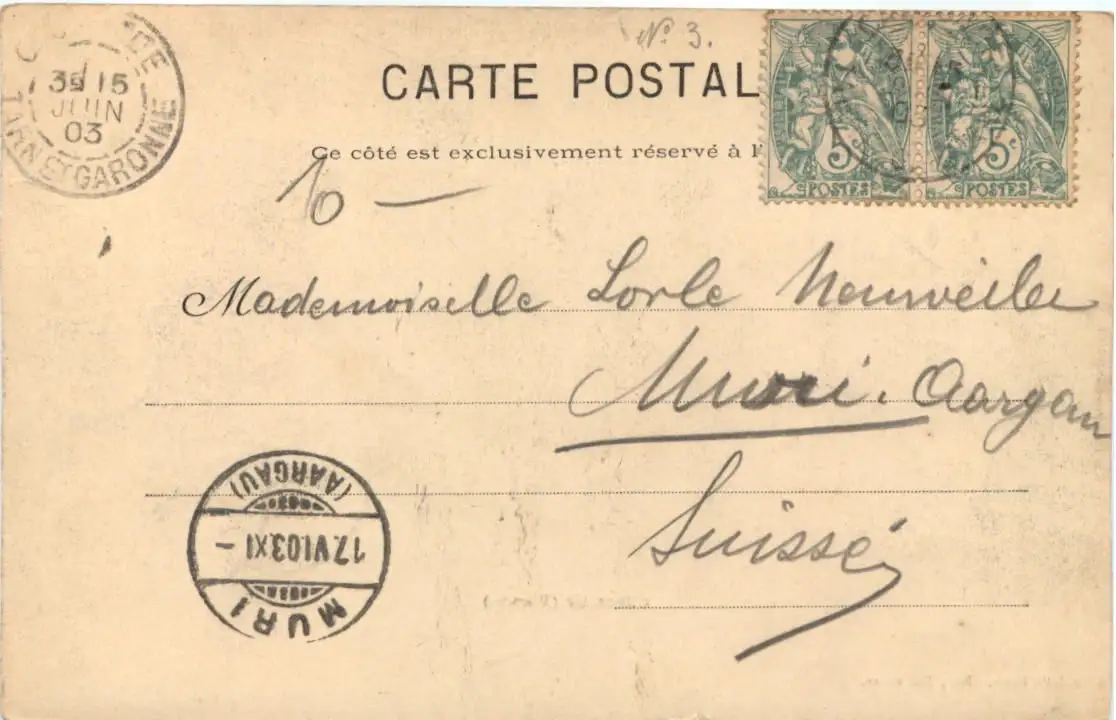 N° 3.
CARTE POSTAL
Ce côté est exclusivement réservé à l'
3E 15
JUIN
03
TARN ET GARONNE
5c 5c
POSTES POSTES
10 —
Mademoiselle Lorle Neuweiler
Muri. Aargau
Suisse
(AARGAU)
17.VI.03.XI –
MURI